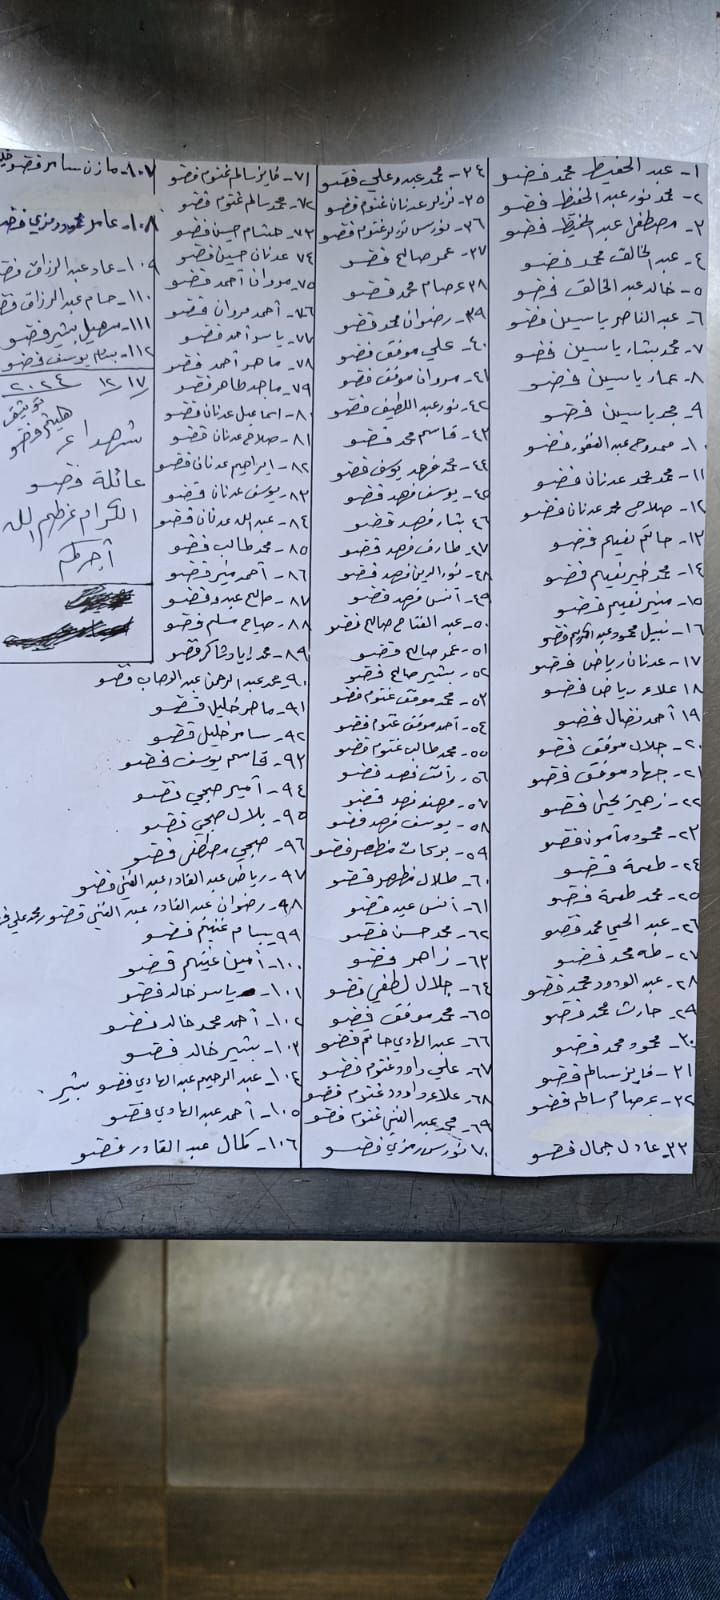 ١- عبد الحفيظ محمد قضو
٢- محمد نور عبد الحفيظ قضو
٣- مصطفى عبد الحفيظ قضو
٤- عبد الخالق محمد قضو
٥- خالد عبد الخالق قضو
٦- عبد الناصر ياسين قضو
٧- محمد بشار ياسين قضو
٨- عمار ياسين قضو
٩- محمد ياسين قضو
١٠- ممدوح عبد الغفور قضو
١١- محمد محمد عدنان قضو
١٢- صلاحي محمد عدنان قضو
١٣- حاتم نعيم قضو
١٤- محمد خير نعيم قضو
١٥- منير نعيم قضو
١٦- نبيل محمود عبد الكريم قضو
١٧- عدنان رياض قضو
١٨ علاء رياض قضو
١٩ أحمد نضال قضو
٢٠- جلال موفق قضو
٢١- جهاد موفق قضو
٢٢- زهير يحيى قضو
٢٣- محمود مأمون قضو
٢٤- طعمة قضو
٢٥- محمد طعمة قضو
٢٦- عبد الحي محمد قضو
٢٧- طه محمد قضو
٢٨- عبد الودود محمد قضو
٢٩- حارث محمد قضو
٣٠- محمود محمد قضو
٣١- فايز سالم قضو
٣٢- عصام سالم قضو
٣٣- عادل جمال قضو
٣٤- محمد عبدو علي قضو
٣٥- عدنان غنوم قضو
٣٦- نورس غنوم قضو
٣٧- عمر صالح قضو
٣٨ عصام محمد قضو
٣٩- رضوان محمد قضو
٤٠- علي موفق قضو
٤١- مروان موفق قضو
٤٢- نور عبد اللطيف قضو
٤٣- قاسم محمد قضو
٤٤- محمد فهد يوسف قضو
٤٥- يوسف فهد قضو
٤٦- بشار فهد قضو
٤٧- طارق فهد قضو
٤٨- نور الدين فهد قضو
٤٩- أنس فهد قضو
٥٠- عبد الفتاح صالح قضو
٥١- عمر صالح قضو
٥٢- بشير صالح قضو
٥٣- محمد موفق غنوم قضو
٥٤- أحمد موفق غنوم قضو
٥٥- محمد طالب غنوم قضو
٥٦- رأفت فهد قضو
٥٧- مهند فهد قضو
٥٨- يوسف فهد قضو
٥٩- بركات مظهر قضو
٦٠- طلال مظهر قضو
٦١- أنس عيد قضو
٦٢- محمد حسن قضو
٦٣- زاهر قضو
٦٤- جلال لطفي قضو
٦٥- محمد موفق قضو
٦٦- عبد الهادي حاتم قضو
٦٧- علي داود غنوم قضو
٦٨- علاء داوود غنوم قضو
٦٩- محمد عبد الغني غنوم قضو
٧٠ نورس رمزي قضو
٧١- فايز سالم غنوم قضو
٧٢- محمد سالم غنوم قضو
٧٣- هشام حسين قضو
٧٤ عدنان حسين قضو
٧٥- مروان أحمد قضو
٧٦- أحمد مروان قضو
٧٧- ياسر أحمد قضو
٧٨- ماهر أحمد قضو
٧٩- ماجد طاهر قضو
٨٠- اسماعيل عدنان قضو
٨١- صلاح عدنان قضو
٨٢- ابراهيم عدنان قضو
٨٣- يوسف عدنان قضو
٨٤- عبد الله عدنان قضو
٨٥- محمد طالب قضو
٨٦- أحمد منير قضو
٨٧- صالح عبدو قضو
٨٨- صياح مسلم قضو
٨٩- محمد اياد شاكر قضو
٩٠- محمد عبد الرحمن عبد الوهاب قضو
٩١- ماهر خليل قضو
٩٢- سامر خليل قضو
٩٣- قاسم يوسف قضو
٩٤- أمير صبحي قضو
٩٥- بلال صبحي قضو
٩٦- صبحي مصطفى قضو
٩٧- رياض عبد القادر عبد الغني قضو
٩٨- رضوان عبد القادر عبد الغني قضو
٩٩- بسام غنيم قضو
١٠٠- أمين غنيم قضو
١٠١- ياسر خالد قضو
١٠٢- أحمد محمد خالد قضو
١٠٣- بشير خالد قضو
١٠٤- عبد الرحيم عبد الهادي قضو بشير
١٠٥- أحمد عبد الهادي قضو
١٠٦- كمال عبد القادر قضو
١٠٧- مازن سامر قضو
١٠٨- عامر محمود رمزي قضو
١٠٩- عماد عبد الرزاق
١١٠- حسام عبد الرزاق
١١١- سهيل بشير قضو
١١٢- بسام يوسف قضو
١٢/١٧ ٢٠٢٤
توثيق
هيثم قضو
شهداء
عائلة قضو
الكرام عظم الله
أجركم